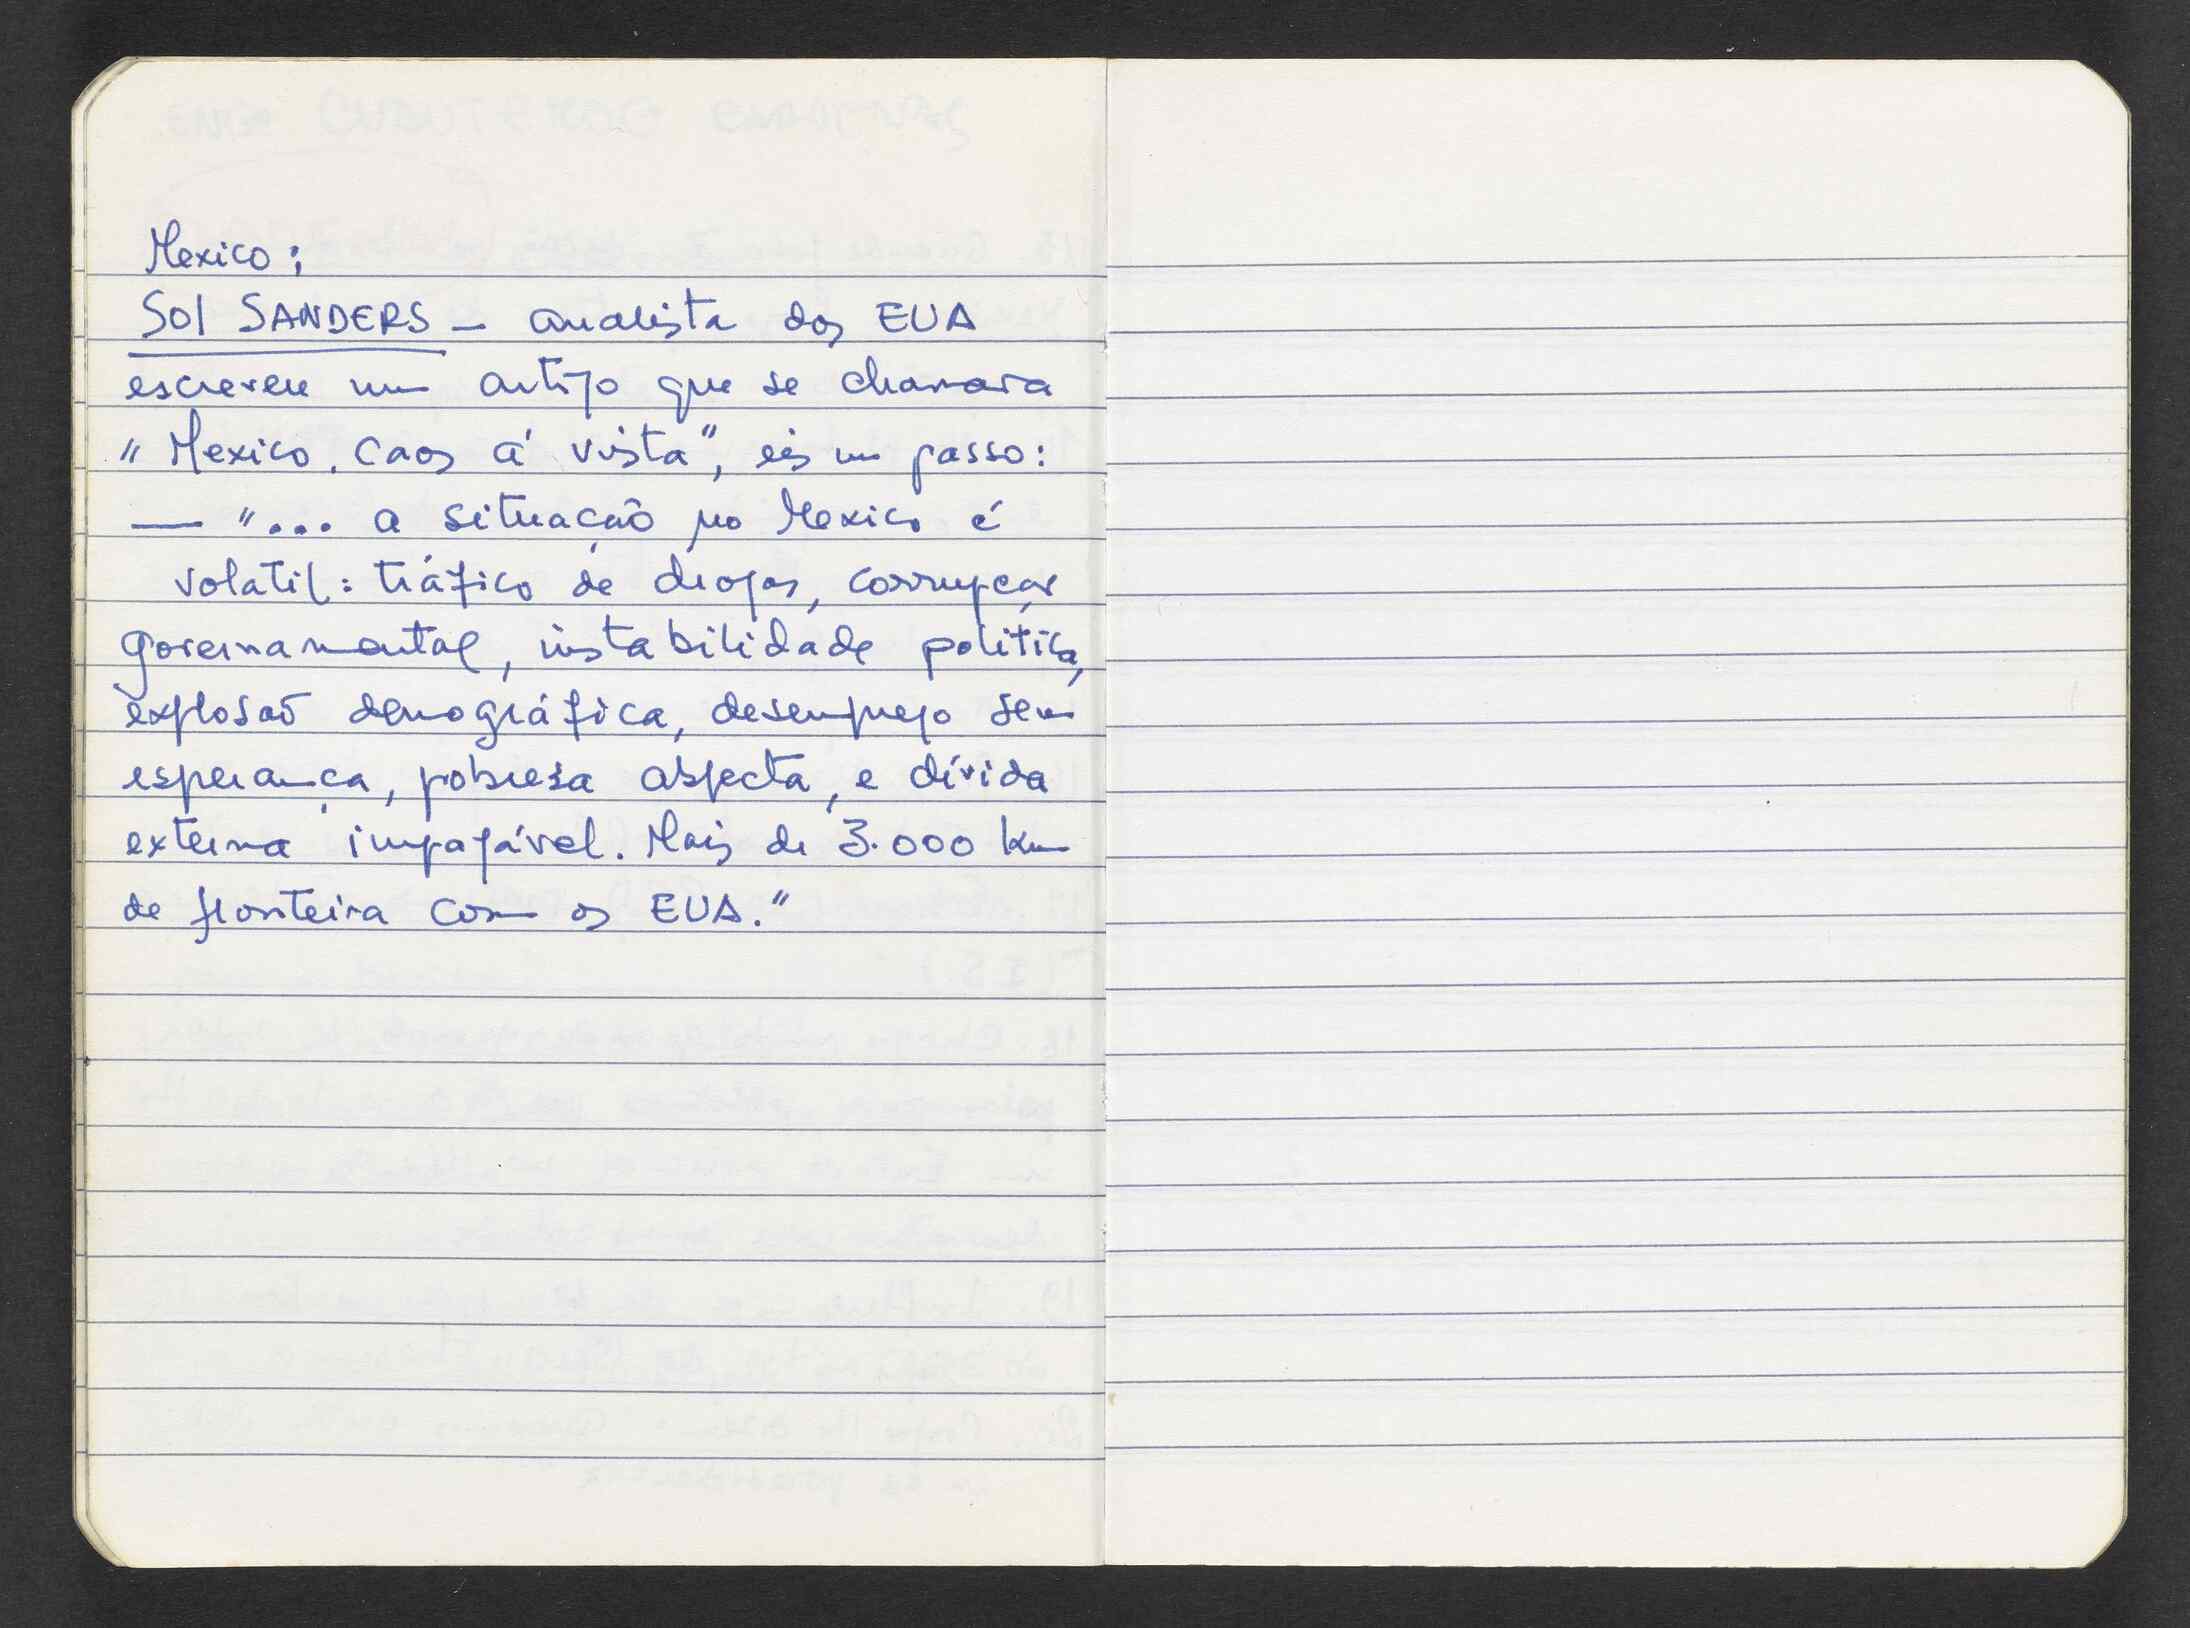 Mexico:
Sol SANDERS — analista dos EUA
escreveu um artigo que se chamava
"Mexico. Caos á vista", eis um passo:
— "... a situação no Mexico é
volatil: tráfico de drogas, corrupção
governamental, instabilidade política,
explosaõ demográfica, desemprego sem
esperança, pobresa abjecta, e dívida
externa impagável. Mais de 3.000 km
de fronteira com os EUA."